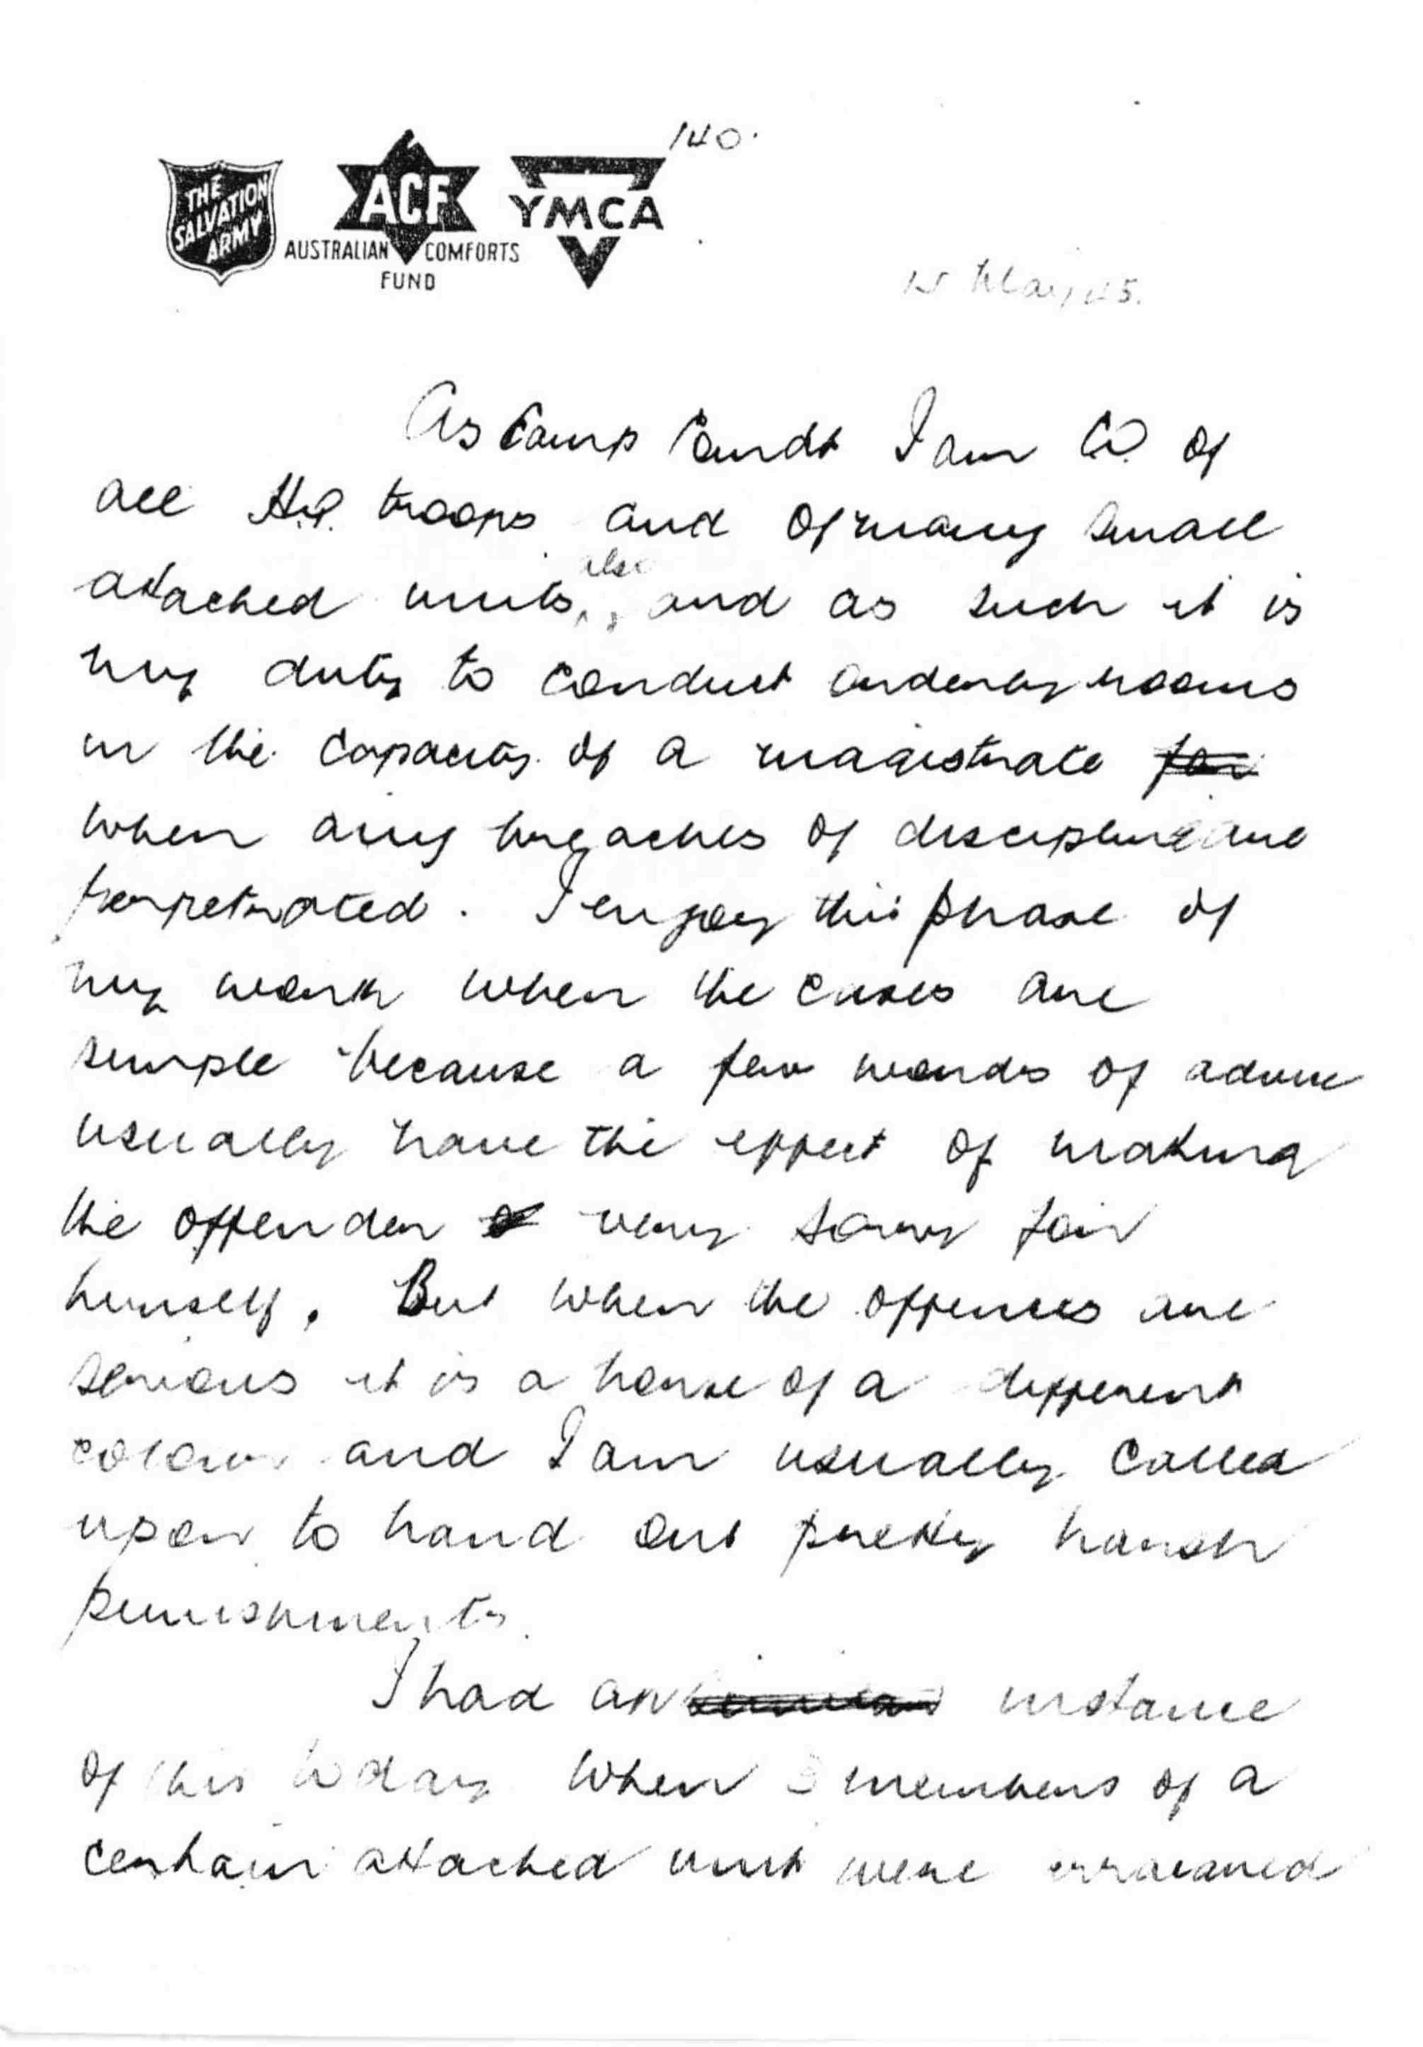 140.
THE
SALVATION
ARMY
ACF
AUSTRALIAN COMFORTS
FUND
YMCA
May 45.
As Camp Comdt I am CO. of
all H.Q. troops and of many small
attached units, also and as such it is
my duty to conduct orderly rooms
in the capacity of a magistrate for
when any breaches of discipline are
perpetrated. I enjoy this phase of
my work when the cases are
simple because a few words of advice
usually have the effect of making
the offender very sorry for
himself. But when the offences are
serious it is a horse of a different
colour and I am usually called
upon to hand out pretty harsh
punishments.
I had an instance
of this today when 3 members of a
certain attached unit were arraigned